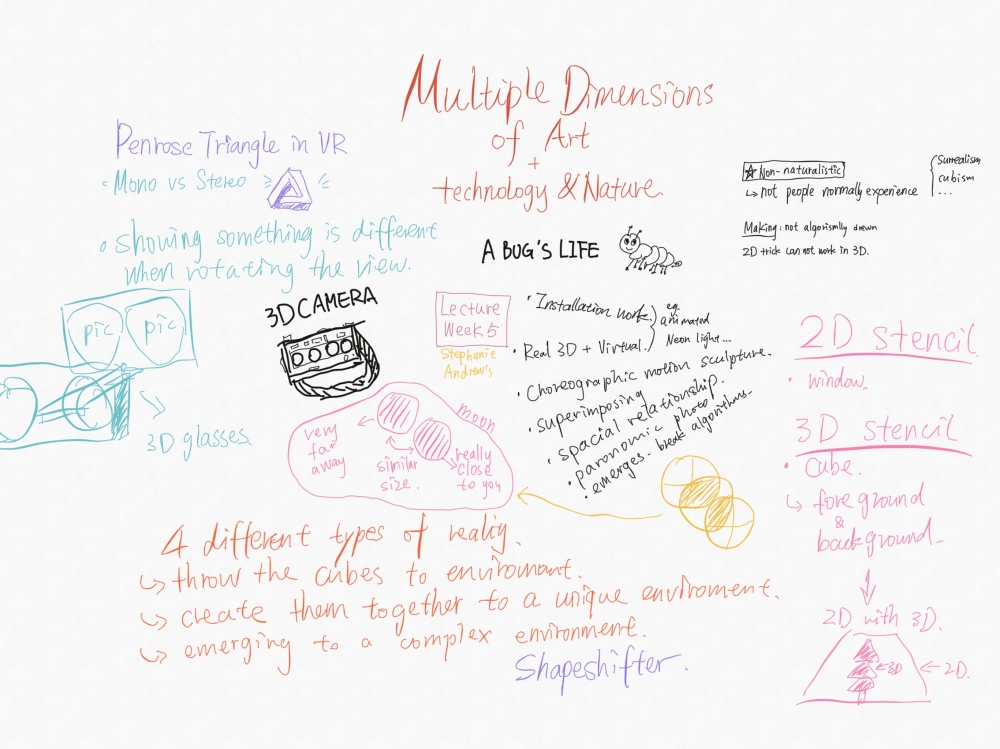 Multiple Dimensions
of Art
+
technology & Nature
Penrose Triangle in VR
• Mono vs Stereo
• showing something is different
when rotating the view.
pic pic
3D glasses
3D CAMERA
A BUG'S LIFE
☆ Non-naturalistic
↳ not people normally experience
Surrealism
cubism
...
Making: not algorismlly drawn
2D trick can not work in 3D.
Lecture
Week 5
Stephanie
Andrew's
• Installation work.
• Real 3D + Virtual.
eg.
animated
Neon light...
• Choreographic motion sculpture.
• superimposing
• spacial relationship.
• paronomic photo
• emerges. break algorithms.
moon
very
far
away
similar
size.
really
close
to you
4 different types of reality.
↳ throw the cubes to enviromant.
↳ create them together to a unique enviroment.
↳ emerging to a complex environment.
Shapeshifter.
2D stencil
• window.
3D stencil
• Cube.
↳ foreground
&
background
2D with 3D.
←3D
←2D.